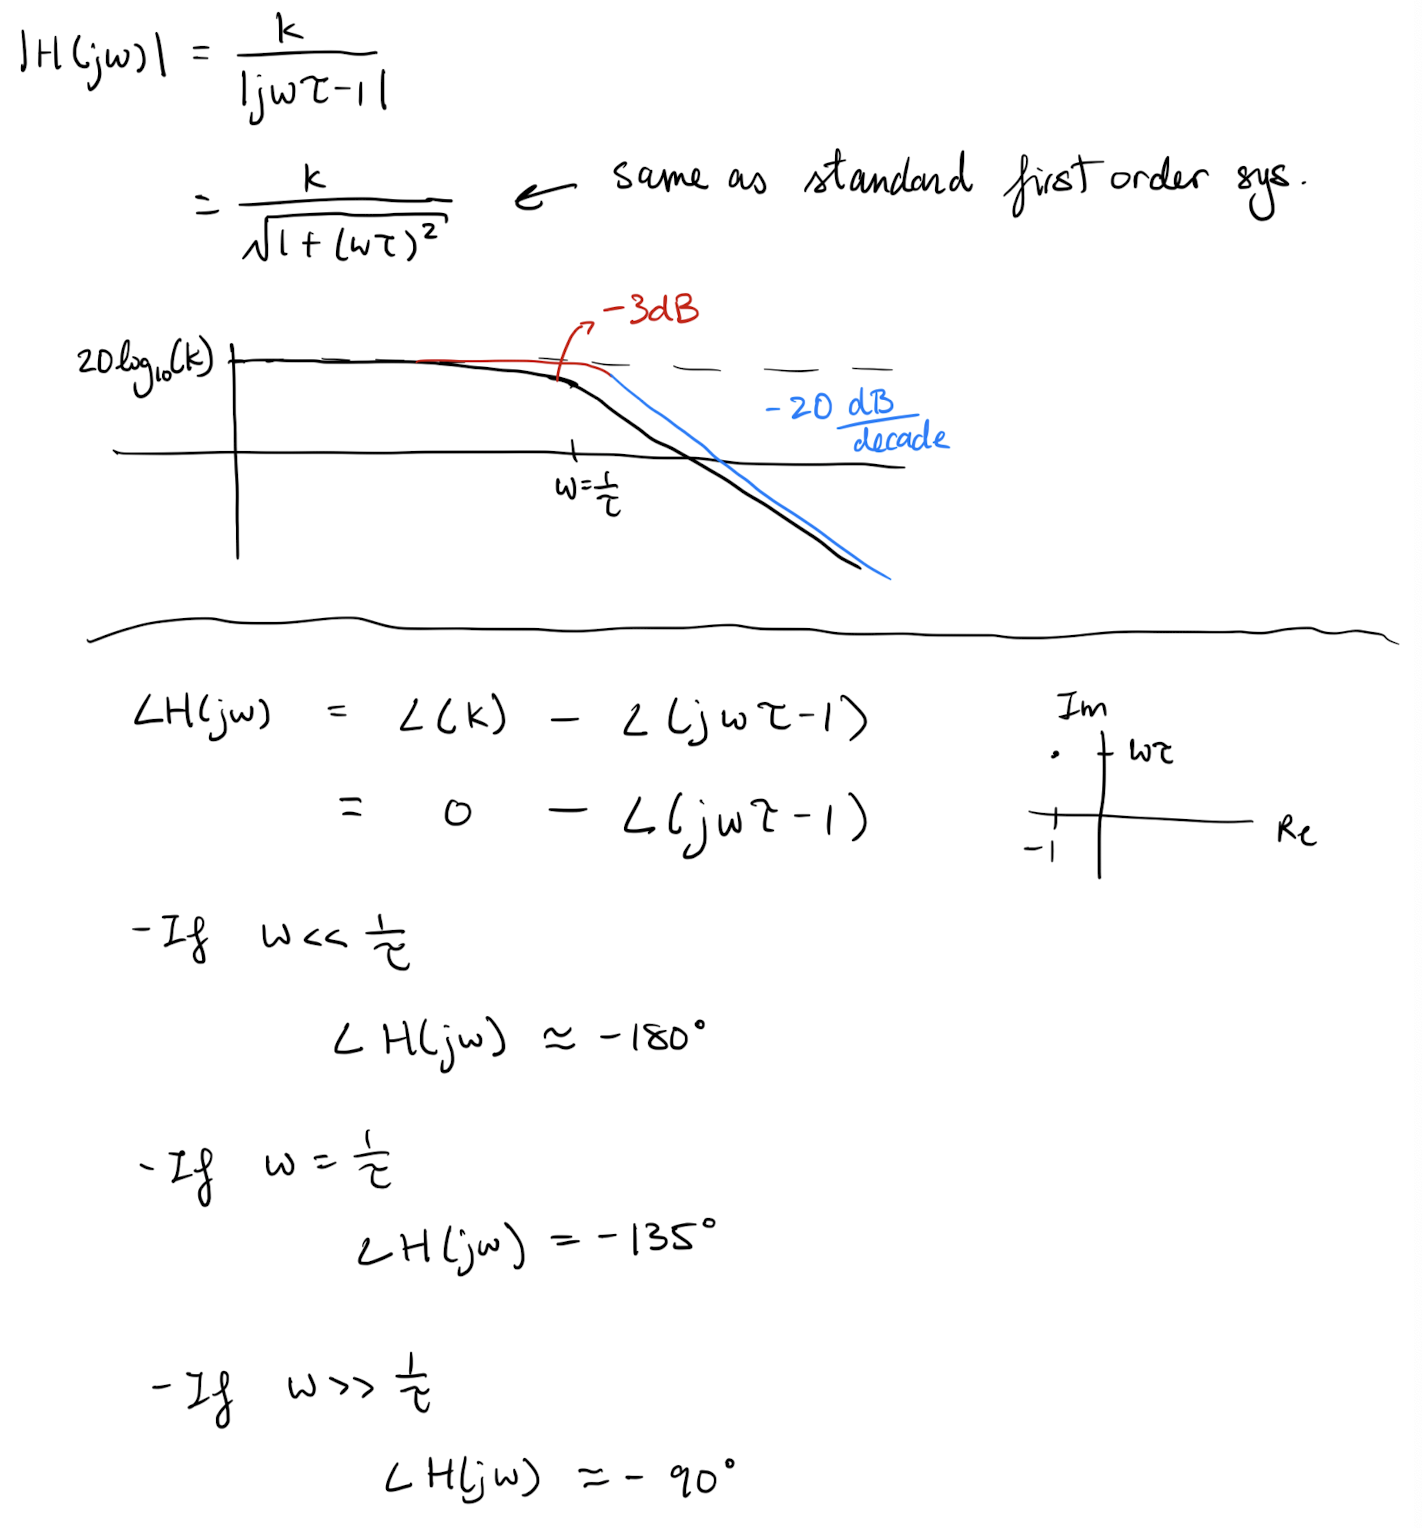 |H(jω)| = k / |jωτ-1|
= k / √(1 + (ωτ)²) ← same as standard first order sys.
-3dB
20log₁₀(k)
-20 dB/decade
ω=1/τ
∠H(jω) = ∠(k) - ∠(jωτ-1)
Im
ωτ
= 0 - ∠(jωτ-1)
Re
-1
-If ω<< 1/τ
∠H(jω) ≈ -180°
-If ω = 1/τ
∠H(jω) = -135°
-If ω>> 1/τ
∠H(jω) ≈ -90°